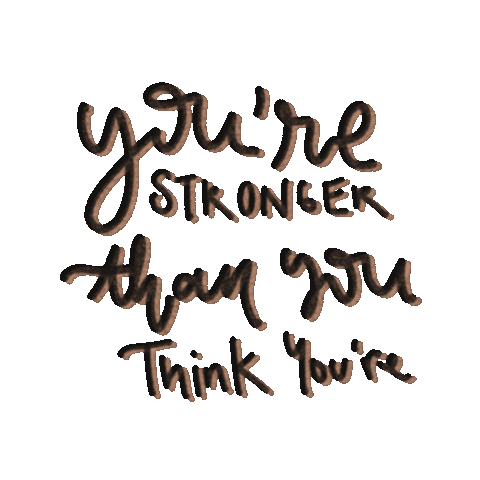 you're
STRONGER
than you
Think You're